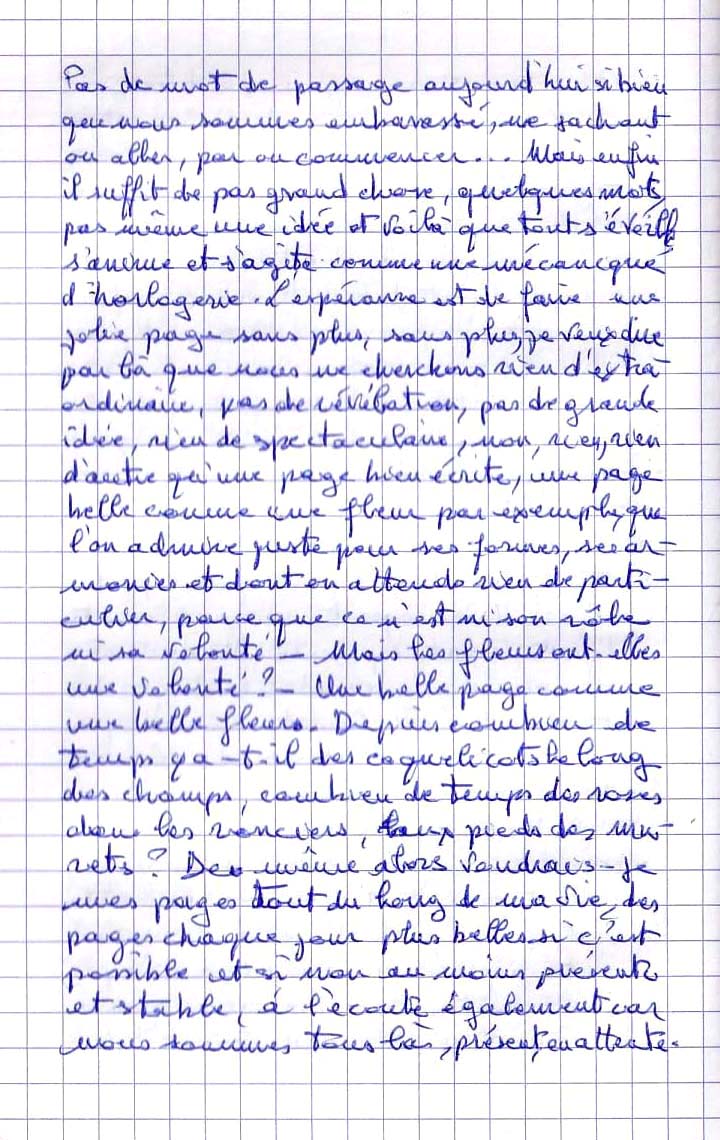 Pas de mot de passage aujourd'hui si bien
que nous sommes embarassé, ne sachant
ou aller, par ou commencer... Mais enfin
il suffit de pas grand chose, quelques mots,
pas même une idée et voilà que tout s'éveille
s'anime et s'agite comme une mécanique
d'horlogerie. L'espérance est de faire une
jolie page sans plus, sans plus, je veux dire
par là que nous ne cherchons rien d'extra
ordinaire, pas de révélation, pas de grande
idée, rien de spectaculaire, non, rien, rien
d'autre qu'une page bien écrite, une page
belle comme une fleur par exemple, que
l'on admire juste pour ses formes, ses ar-
monies et dont on attends rien de parti-
culier, parce que ce n'est ni son rôle
ni sa volonté - Mais les fleurs ont-elles
une volonté ? - Une belle page comme
une belle fleurs. Depuis combien de
temps y a-t-il des coquelicots le long
des champs, combien de temps des roses
dans les ronciers, aux pieds des mu-
rets ? De même alors voudrais-je
mes pages tout du long de ma vie, des
pages chaque jour plus belles si c'est
possible et si non au moins présente
et stable, à l'écoute également car
nous sommes tous là, présent, en attente.